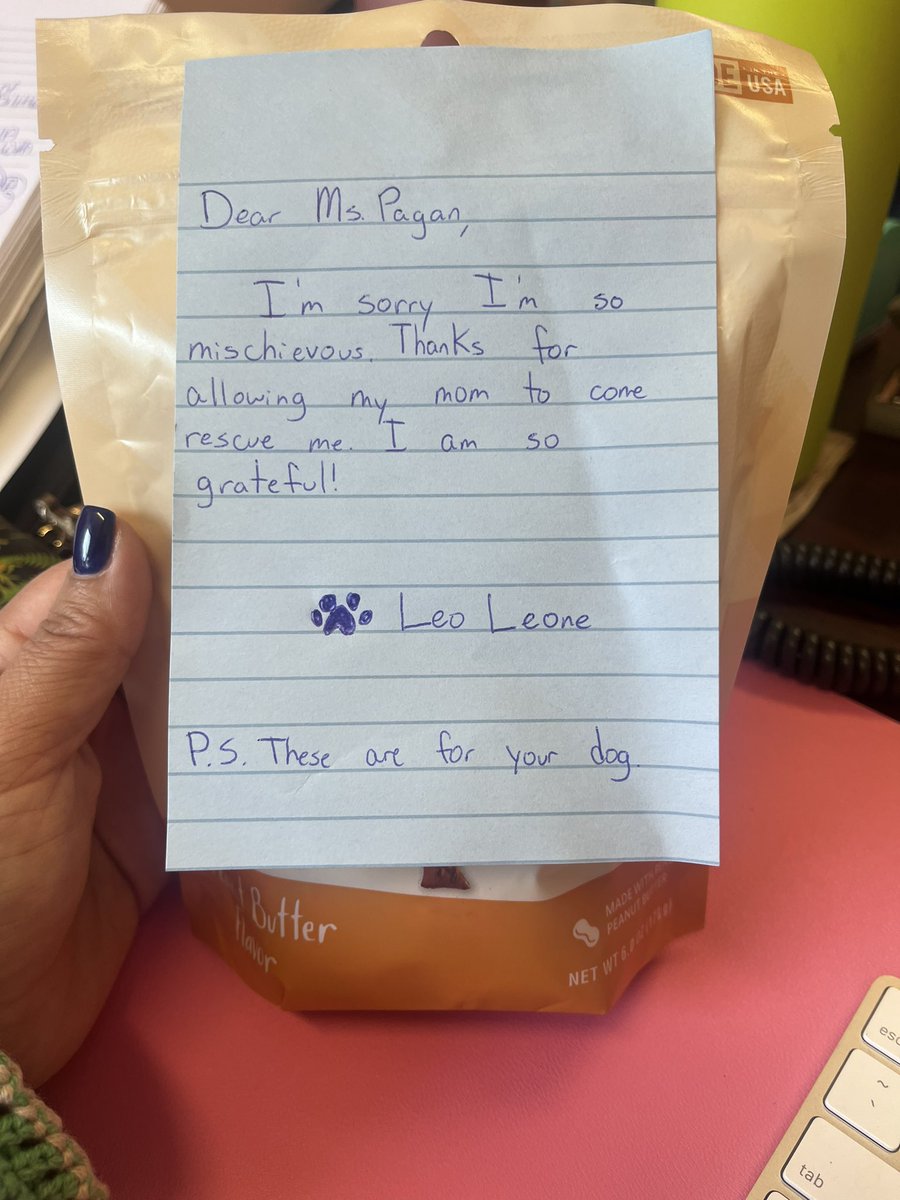 USA
Dear Ms. Pagan,
I'm sorry I'm so
mischievous. Thanks for
allowing my mom to come
rescue me. I am so
grateful!
Leo Leone
P.S. These are for your dog.
Butter
Flavor
MADE WITH
PEANUT BUTTER
NET WT 6.0 OZ
esc
~
`
tab